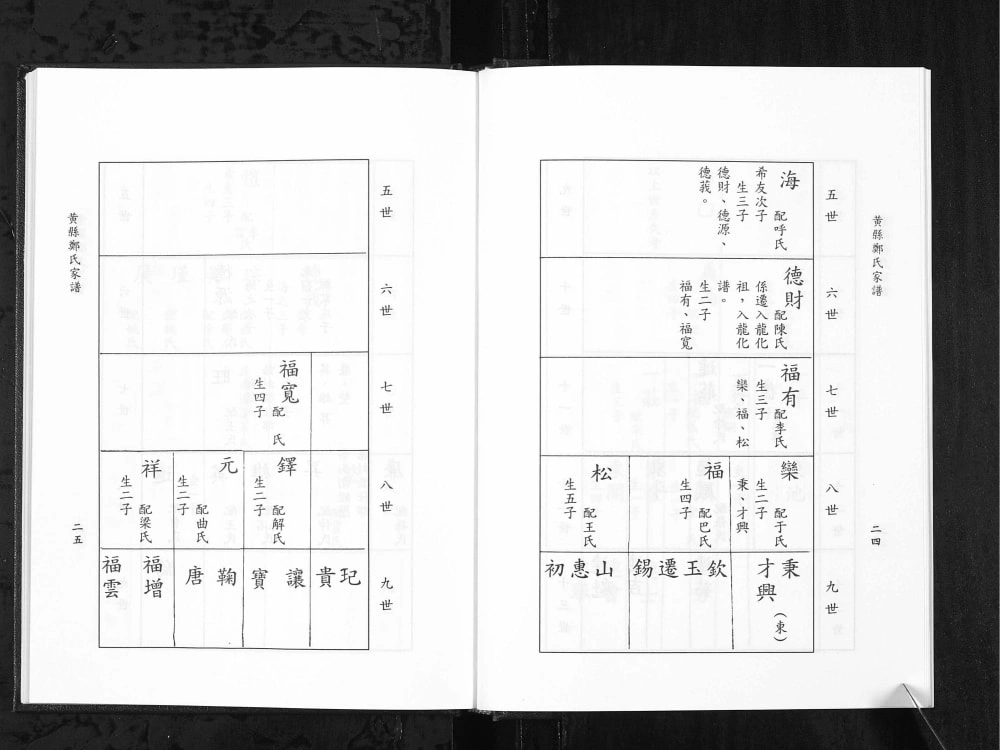 黃縣鄭氏家譜
二四
五世
海
配呼氏
希友次子
生三子
德財、德源、
德莪。
六世
德財
配陳氏
係遷入龍化
祖，入龍化
譜。
生二子
福有、福寬
七世
福有
配李氏
生三子
欒、福、松
八世
欒
配于氏
生二子
秉、才興
福
配巴氏
生四子
松
配王氏
生五子
九世
秉
（東）
才興
欽
玉
遷
錫
山
惠
初
五世
六世
七世
福寬
配　氏
生四子
八世
鐸
配解氏
生二子
元
配曲氏
生二子
祥
配梁氏
生二子
九世
玘
貴
讓
寶
鞠
唐
福增
福雲
黃縣鄭氏家譜
二五